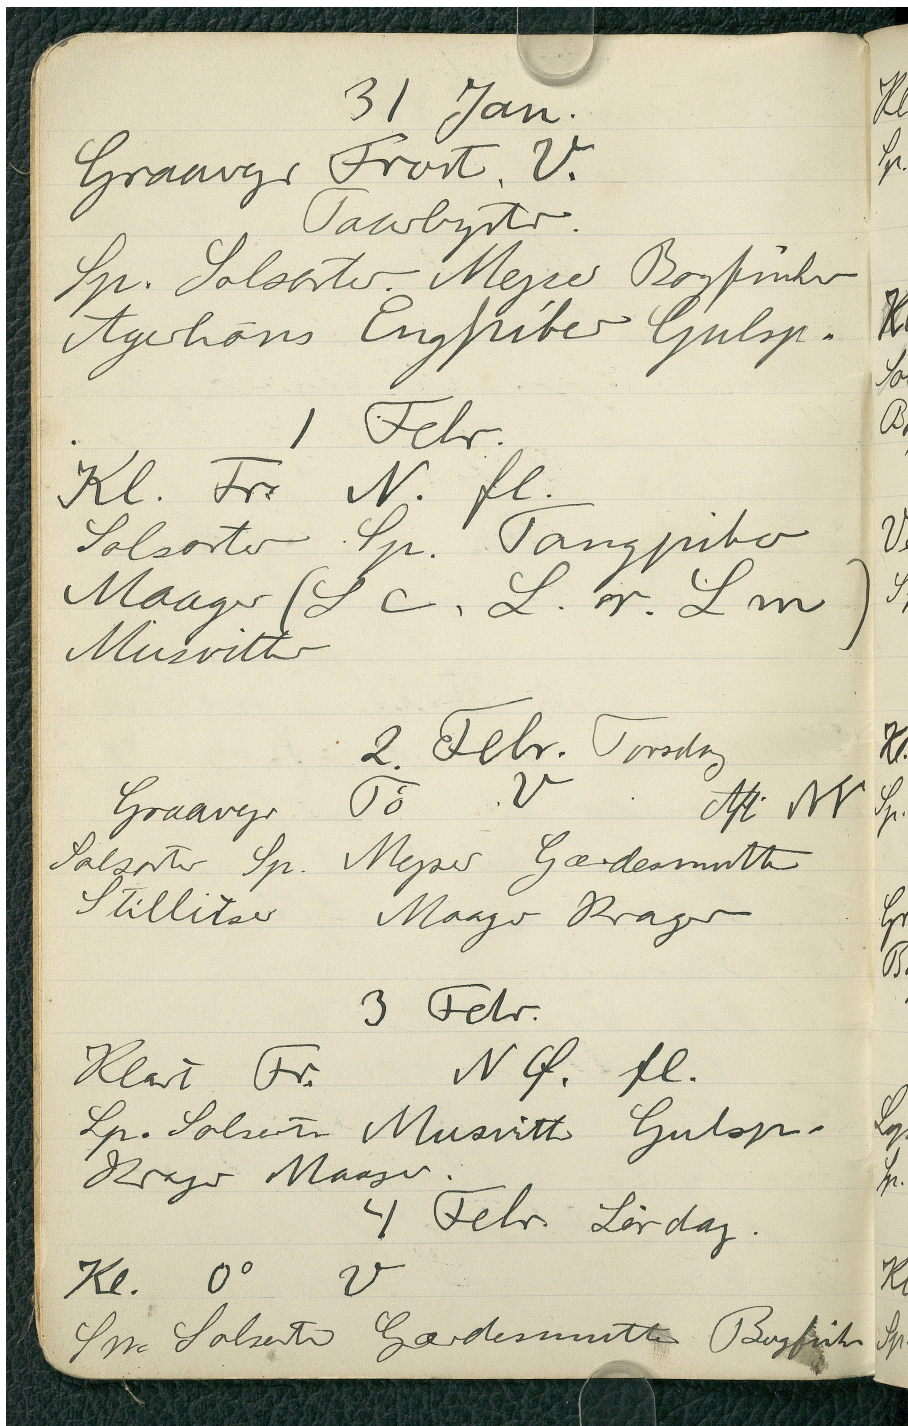 31 Jan.
Graavejr Frost. V.
Taarbystr.
Sp. Solsorter. Mejser Bogfinker
Agerhøns Engpiber Gulsp.
1 Febr.
Kl. Fr. N. fl.
Solsorter Sp. Tangpiber
Maager (L c. L. m. L m)
Musvitter
2. Febr. Torsdag
Graavejr Tø V Aft. NV
Solsorter Sp. Mejser Gærdesmutte
Stillitser Maager Krager
3 Febr.
Klart Fr. N Ø. fl.
Sp. Solsorter Musvitte Gulsp.
Krager Maager.
4 Febr. Lørdag.
Kl. 0° V
Sp. Solsorter Gærdesmutte Bogfinke